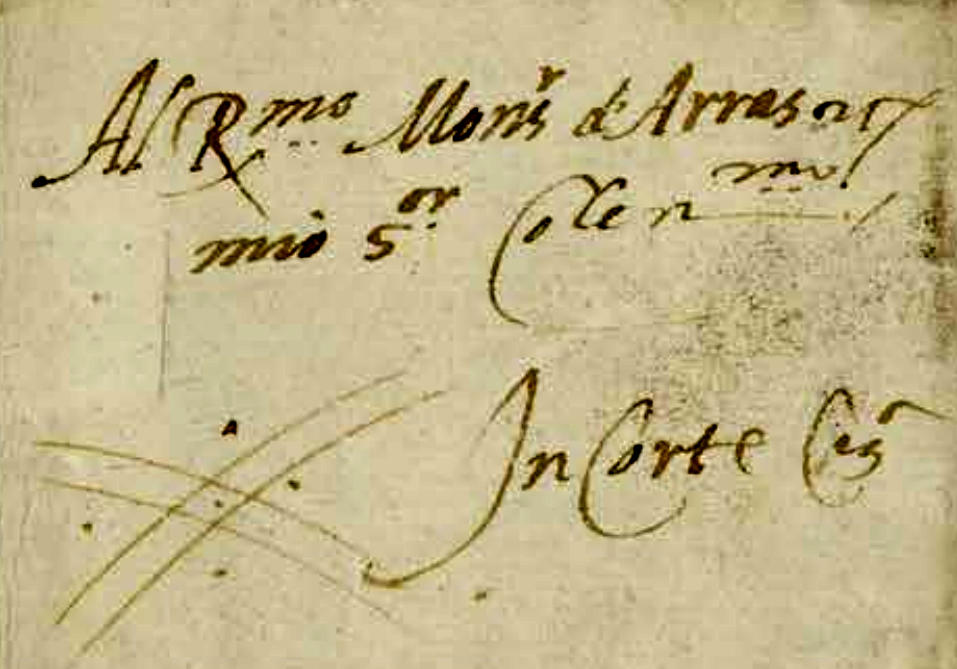 Al Rmo Monsr de Arras
mio Sor Colenmo
In Corte Cesa